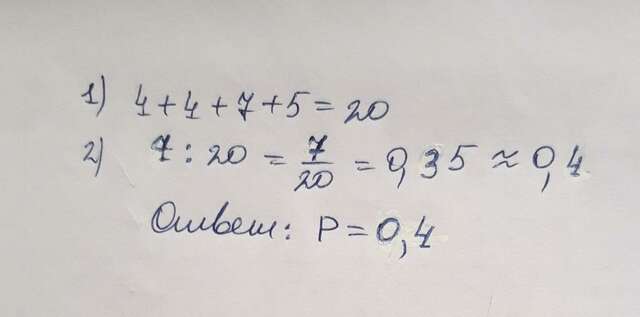 1) 4+4+7+5=20
2) 7:20 = 7/20 = 0,35 ≈ 0,4
Ответ: P=0,4